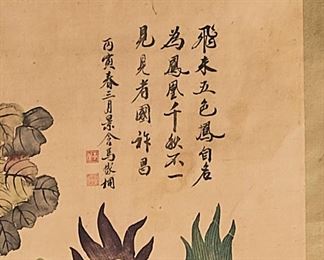 飛来五色鳳自名
為鳳凰千秋不一
見見者國祚昌
丙寅春三月景含馬家桐